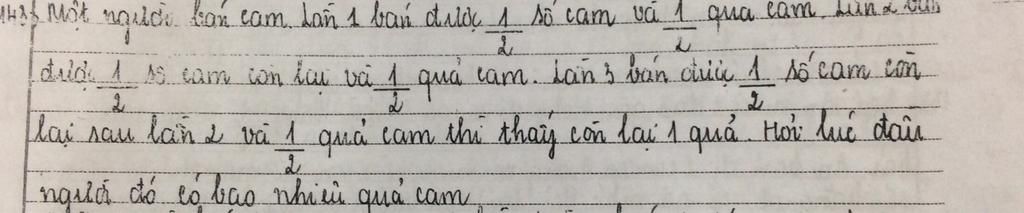 143, Một người bán cam. Lần 1 bán được 1/2 số cam và 1/2 quả cam. Lần 2 bán
được 1/2 số cam còn lại và 1/2 quả cam. Lần 3 bán được 1/2 số cam còn
lại sau lần 2 và 1/2 quả cam thì thấy còn lại 1 quả. Hỏi lúc đầu
người đó có bao nhiêu quả cam